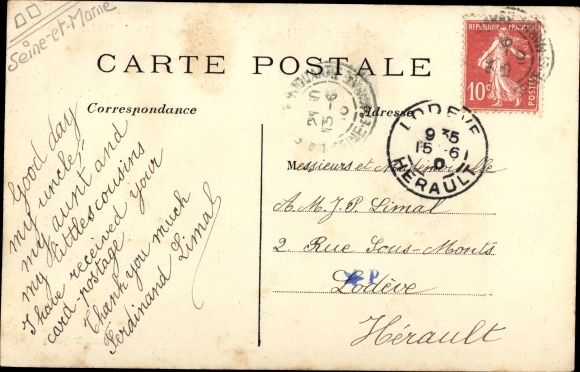 Seine-et-Marne
CARTE POSTALE
Correspondance
Adresse
REPUBLIQUE FRANÇAISE
10c
POSTES
LODEVE
9 35
15 -6
HERAULT
SEINE-ET-M
15 -6
Good day
my uncle,
my aunt and
my littles cousins
I have received your
card-postage
Thank you much
Ferdinand Limal
Messieurs et Mademoiselle
A. M. J. P. Limal
2 Rue Sous-Monts
Lodève
Hérault